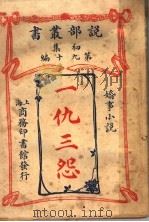 說部叢書
初集第九十編
婚事小說
一仇三怨
上海商務印書館發行